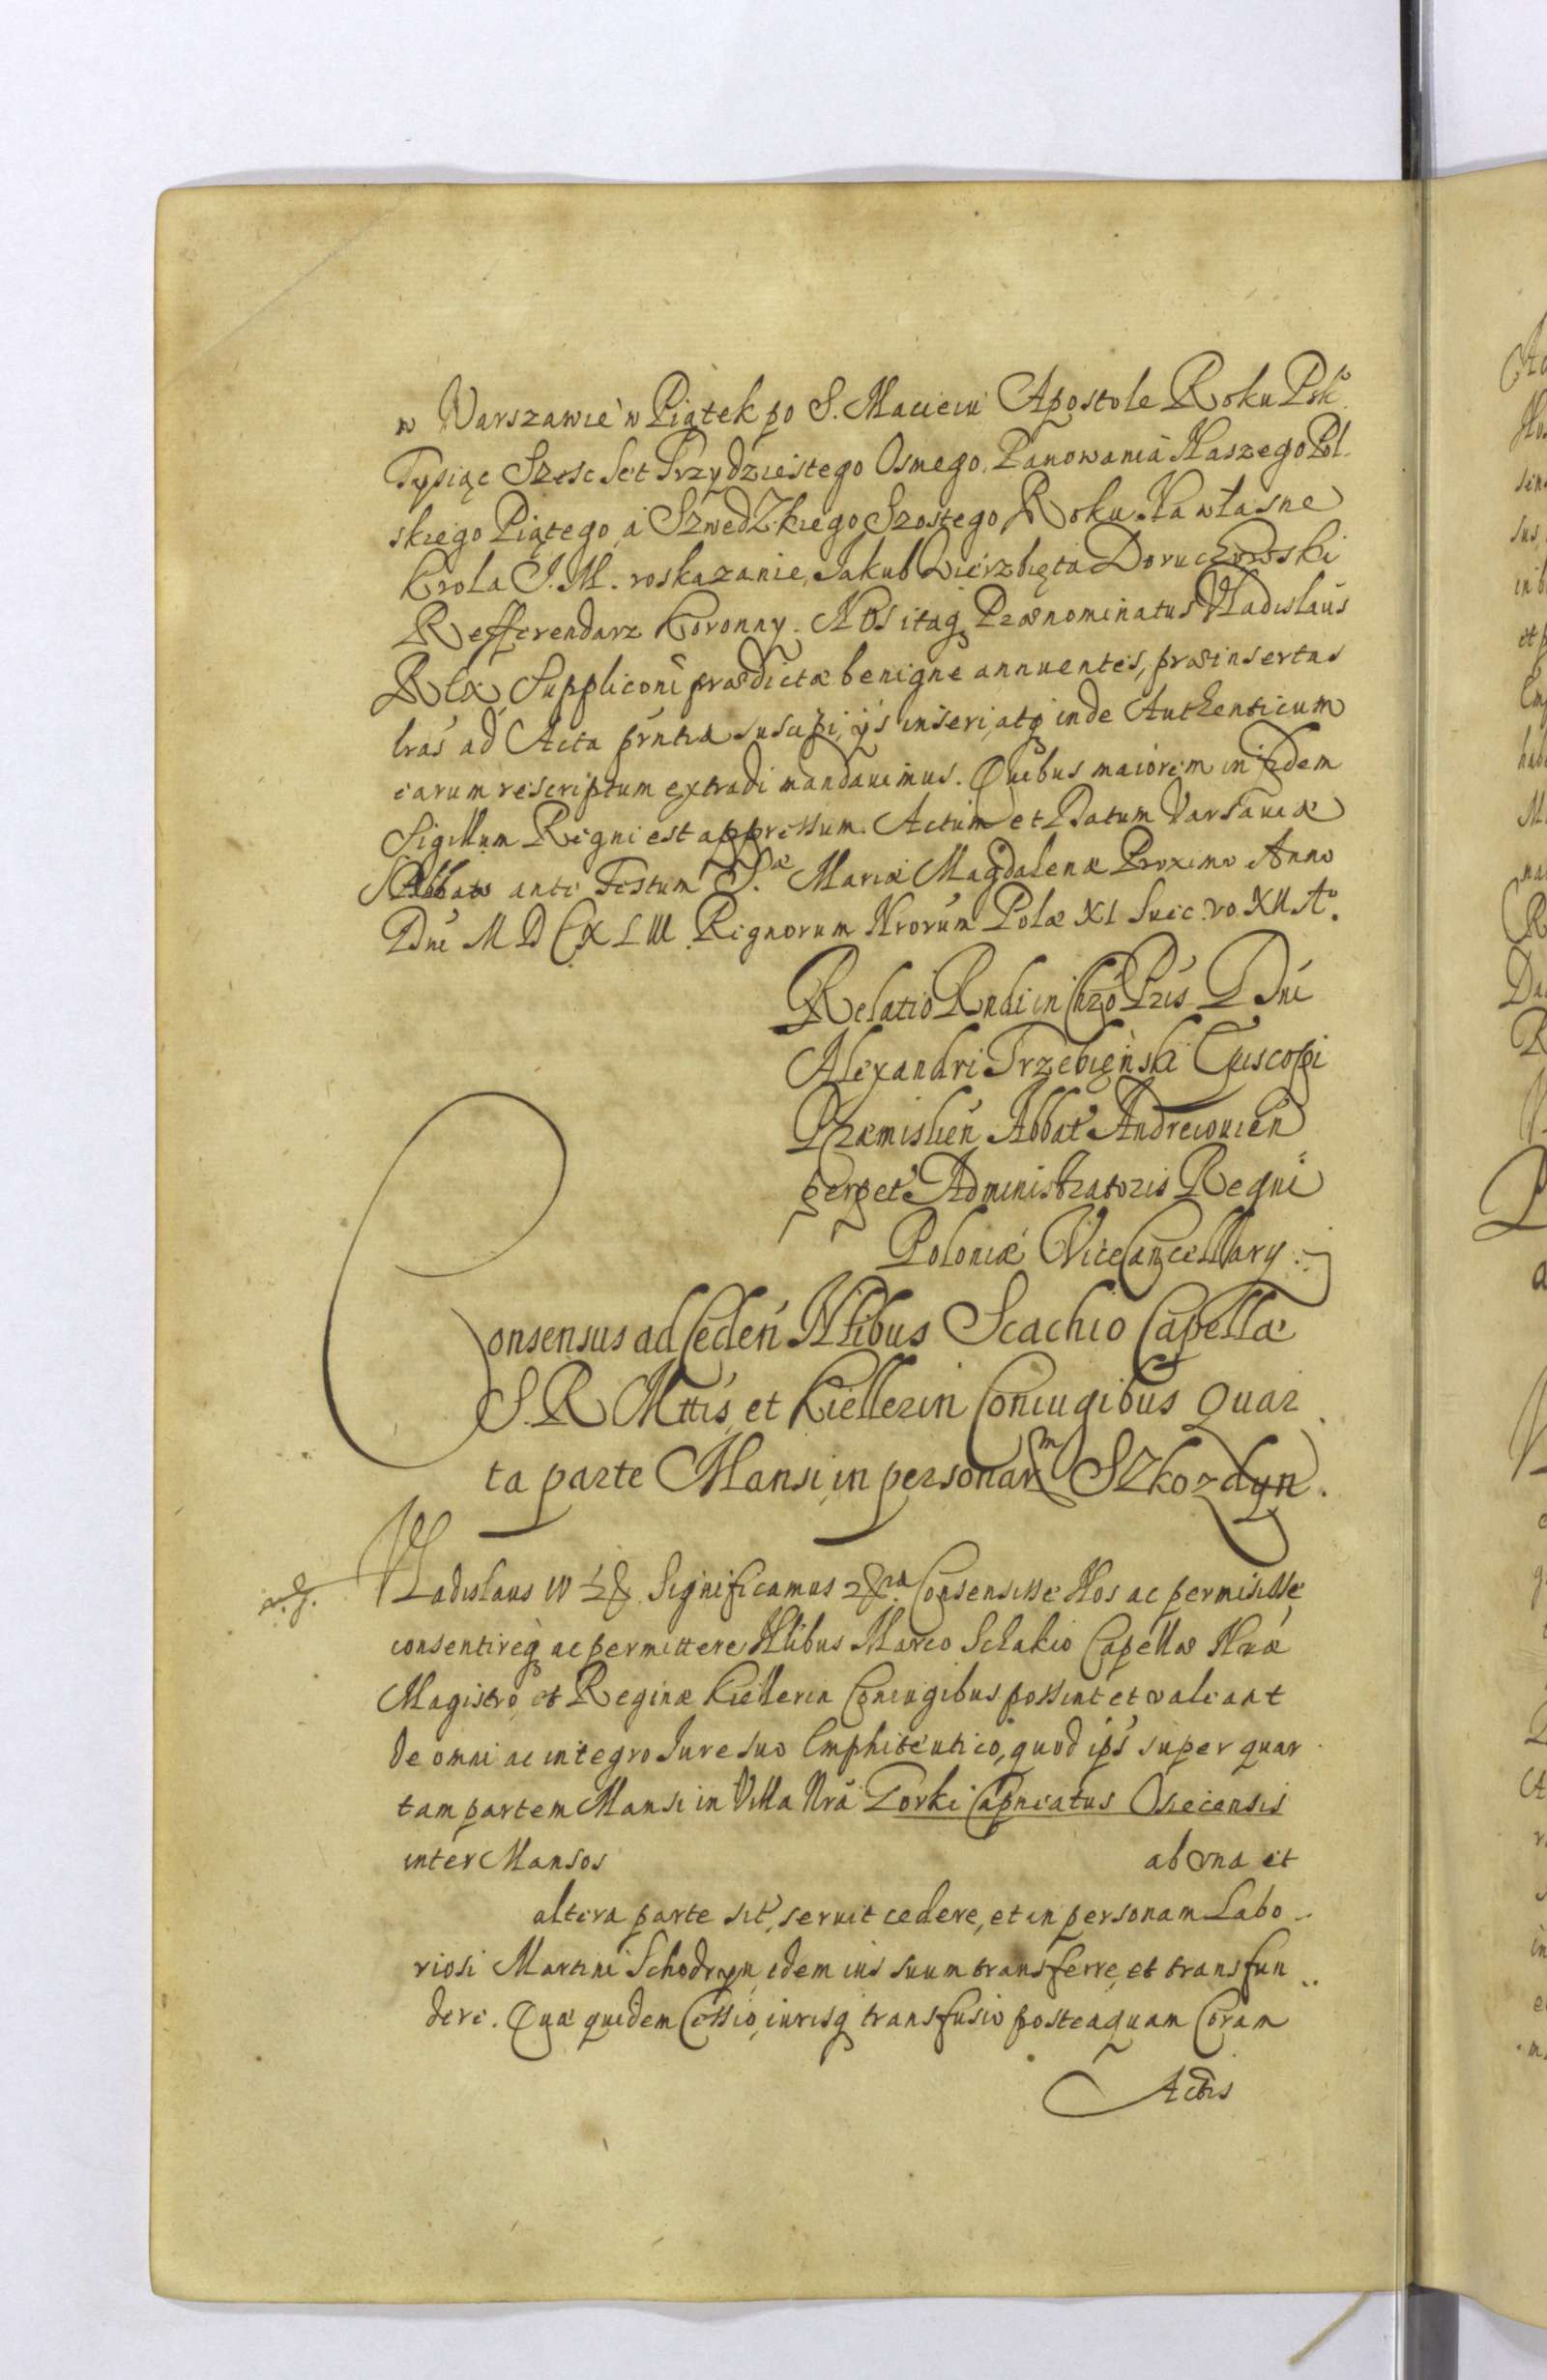 w Warszawie w Piątek po S. Macieiu Apostole Roku Psko
Tysiąc Szesc Set Trzydziestego Osmego, Panowania Naszego Pol
skiego Piątego, á Szwedzkiego Szostego Roku. Na własne
Krola J. M. roskazanie, Jakub Wierzbięta Doruchowski
Refferendarz Koronny. Nos itaq Prænominatus Vladislaus
Rex Suppliconi prædictæ benigne annuentes, præinsertas
lras ad Acta prntia suscipi, ijs inseri, atq inde Authenticum
earum rescriptum extradi mandauimus. Quibus maiorem in fidem
Sigillum Regni est appressum. Actum et Datum Varsauiæ
Sabbato ante Festum S.æ Mariæ Magdalenæ Proximo Anno
Dni M D C X L III Regnorum Nrorum Polæ XI Suec. vo XII Ao.
Relatio Rndi in Chro Pris D Dni
Alexandri Trzebienski Episcopi
Præmislien Abbat Andreiouien
perpet Administratoris Regni
Poloniæ ViceCancellary.
Consensus ad Ceden Nlibus Scachio Capellæ
S. R Mttis, et Kiellerin Coniugibus Quar
ta parte Mansi, in personam Szkordyn.
Vladislaus IV Significamus Consensisse Nos ac permisisse,
consentireq ac permittere Nlibus Marco Schakio Capellæ Nræ
Magistro, et Reginæ Kiellerin Coniugibus possint et valeant
de omni ac integro Jure suo Emphiteutico, quod ips super quar
tam partem Mansi in Villa Nra Gorki Capneatus Osiecensis
inter Mansos ab vna et
altera parte sit, seruit cedere, et in personam Labo
riosi Martini Schodryn, idem ius suum transferre, et transfun
dere. Quæ quidem Cessio, iurisq transfusio posteaquam Coram
Actis